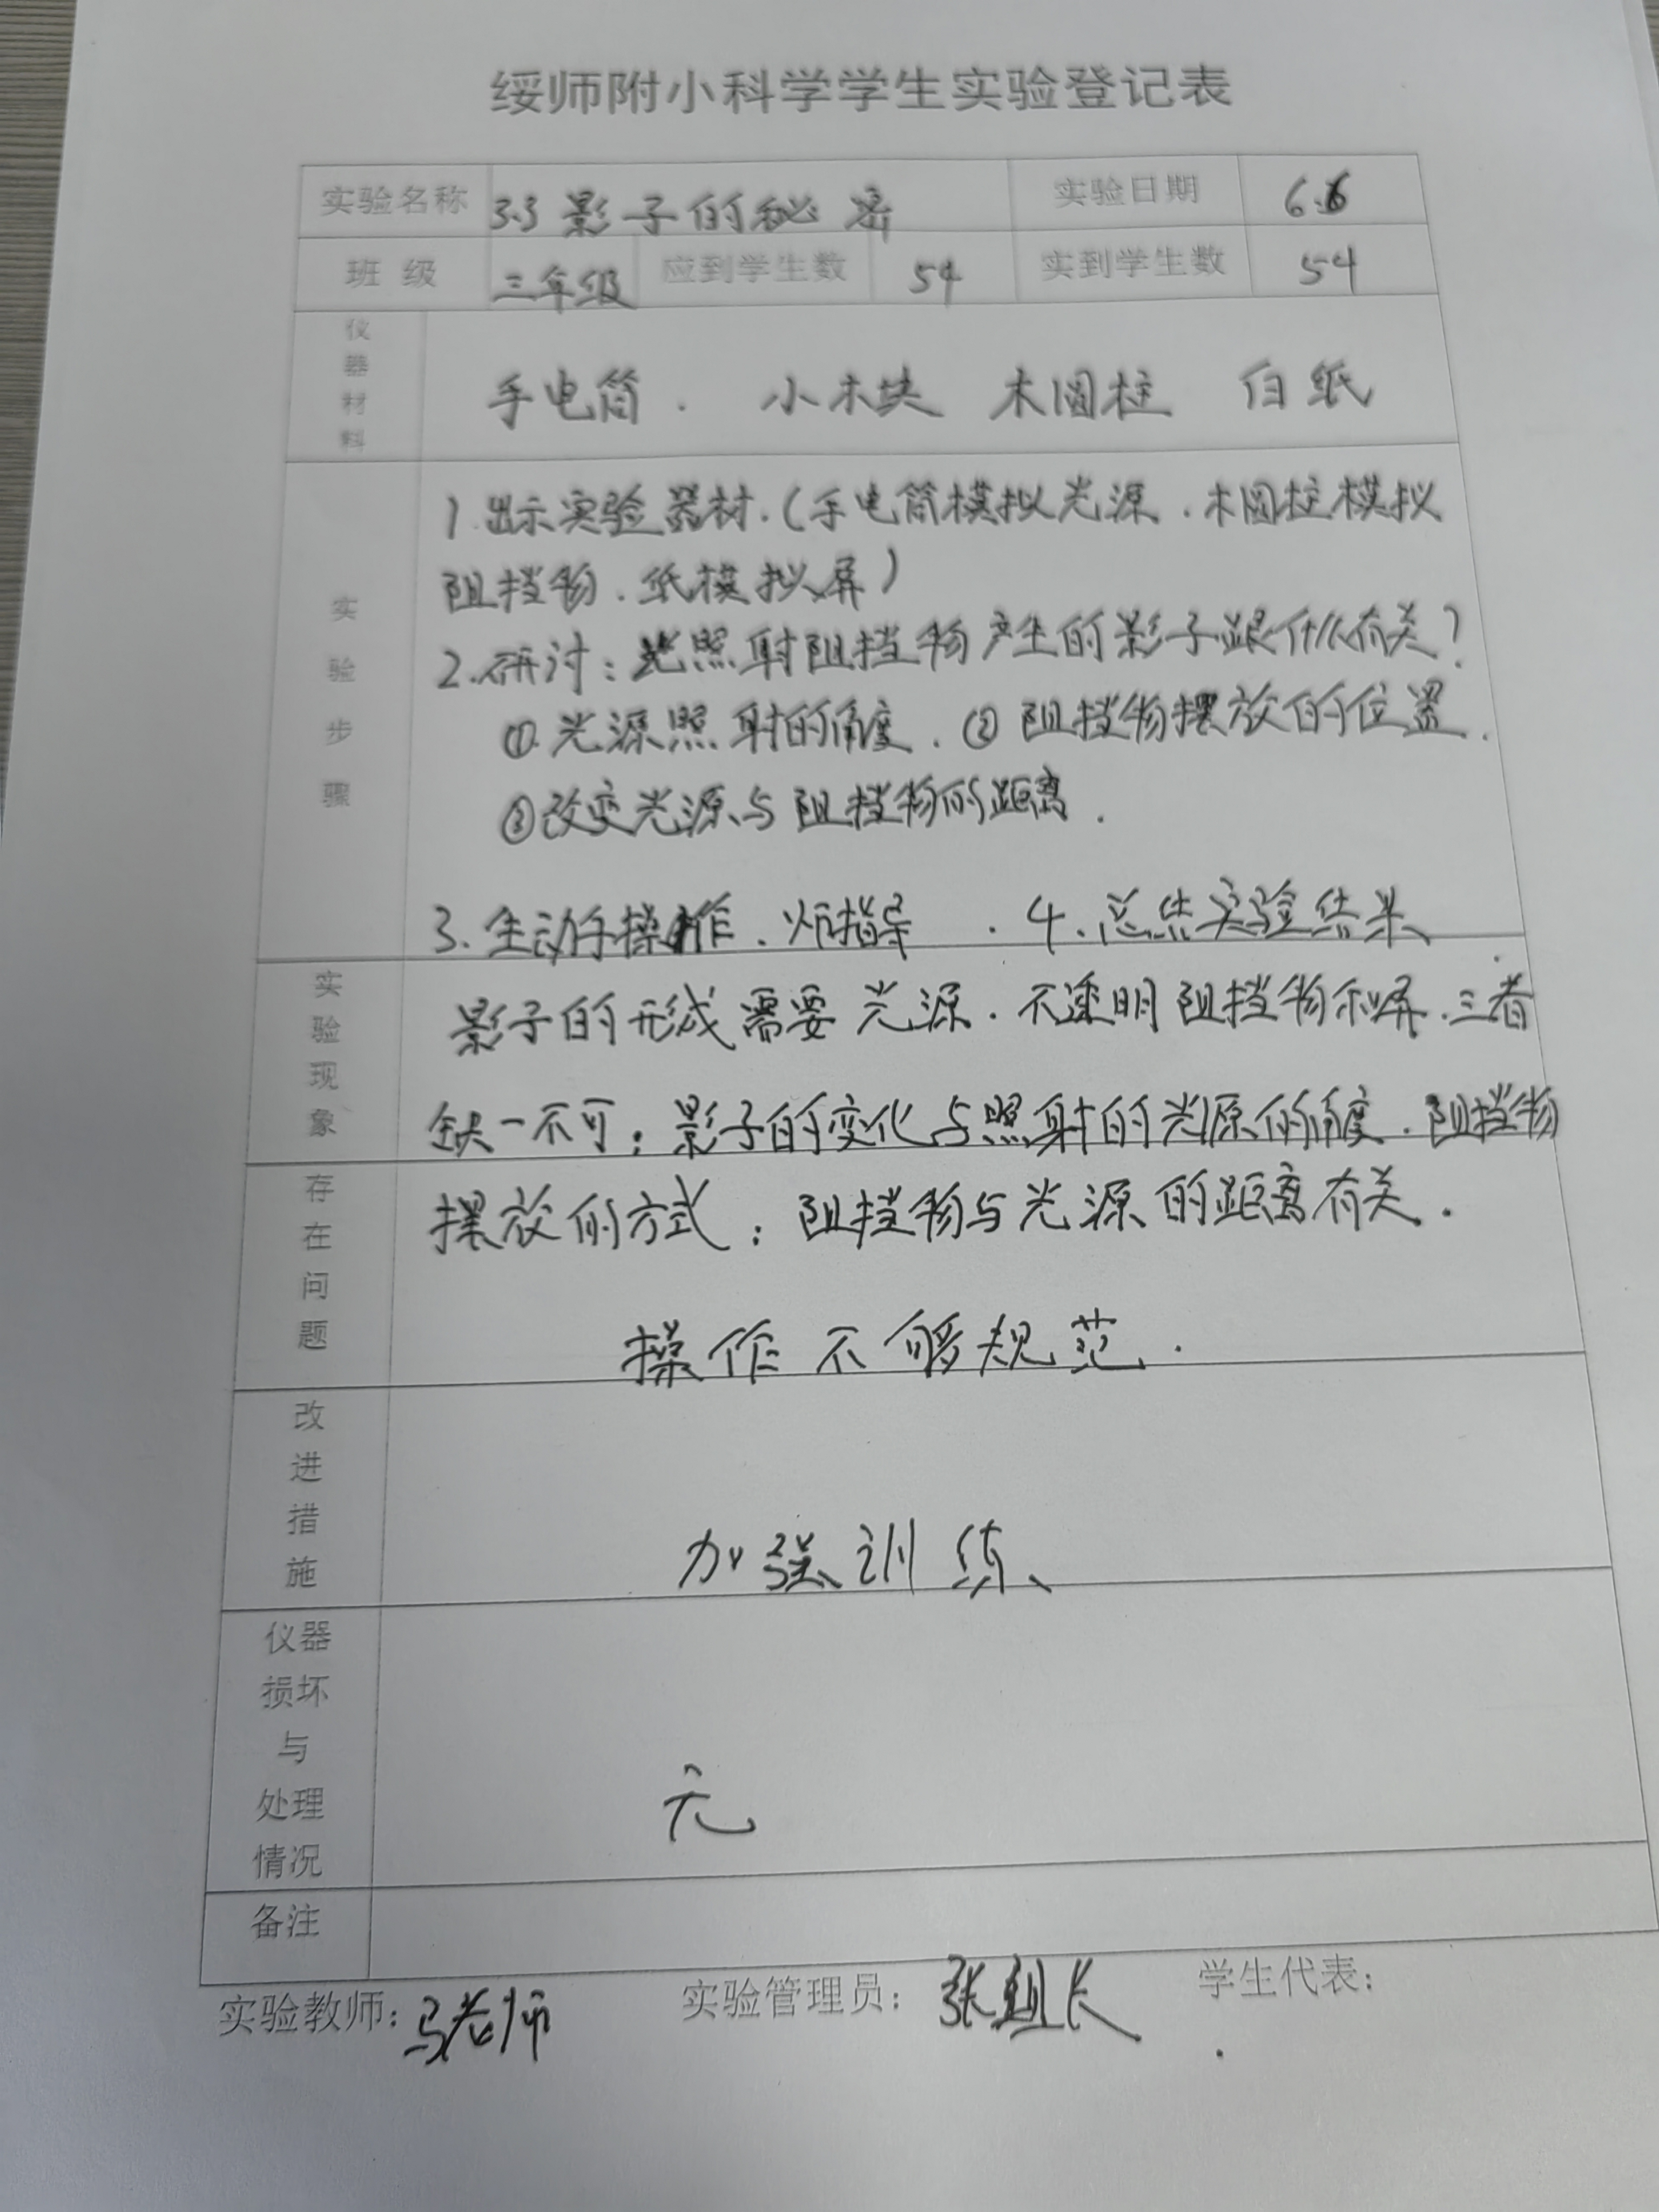 绥师附小科学学生实验登记表
实验名称 3.3影子的秘密 实验日期 6.6
班 级 三年级 应到学生数 54 实到学生数 54
仪器材料 手电筒. 小木块 木圆柱 白纸
实验步骤
1.出示实验器材.(手电筒模拟光源.木圆柱模拟
阻挡物.纸模拟屏)
2.研讨:光照射阻挡物产生的影子跟什么有关?
①光源照射的角度.②阻挡物摆放的位置.
③改变光源与阻挡物的距离.
3.生动手操作.师指导.4.总结实验结果.
实验现象
影子的形成需要光源.不透明阻挡物和屏.三者
缺一不可;影子的变化与照射的光源的角度.阻挡物
摆放的方式;阻挡物与光源的距离有关.
存在问题
操作不够规范.
改进措施
加强训练
仪器损坏与处理情况
无
备注
实验教师:马老师 实验管理员:张组长 学生代表: